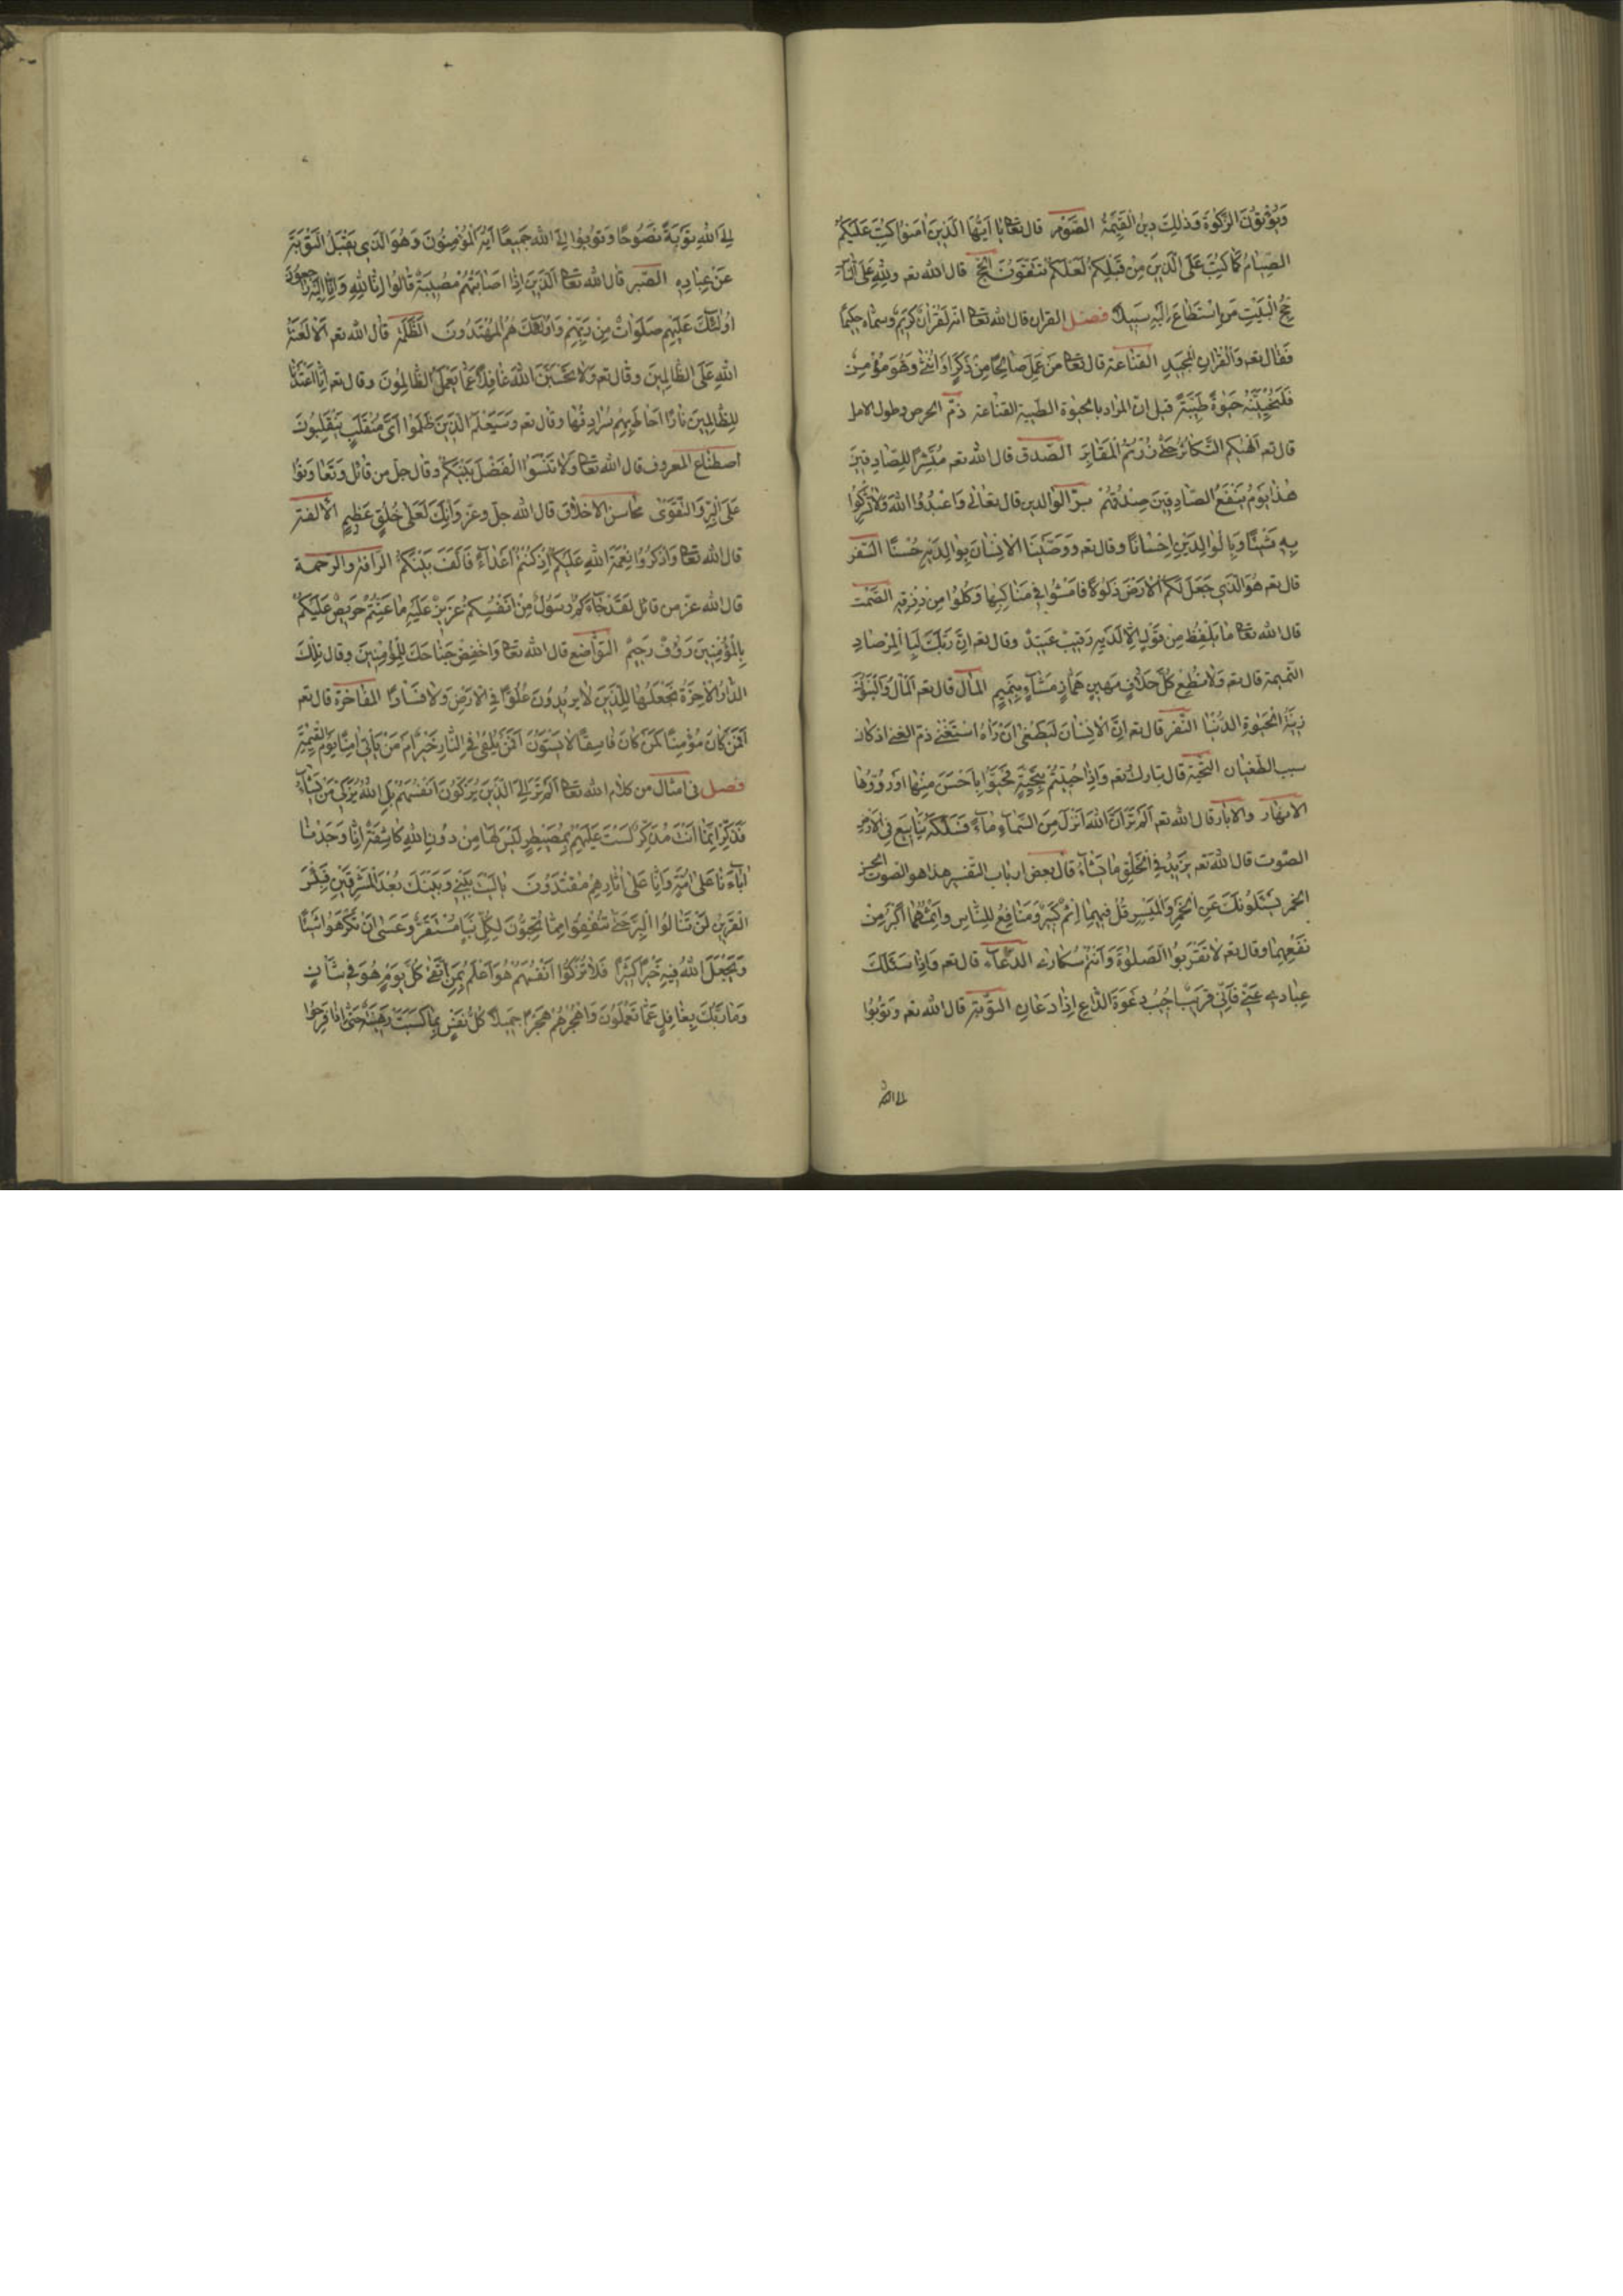 وَيُؤْتُونَ الزَّكٰوةَ وَذٰلِكَ دِينُ الْقَيِّمَةِ الصَّوْم قال تعا يا اَيُّهَا الَّذِينَ اٰمَنُوا كُتِبَ عَلَيْكُمُ
الصِّيَامُ كَمَا كُتِبَ عَلَى الَّذِينَ مِنْ قَبْلِكُمْ لَعَلَّكُمْ تَتَّقُونَ الحج قال الله تعه وَلِلّٰهِ عَلَى النَّاسِ
حِجُّ الْبَيْتِ مَنِ اسْتَطَاعَ اِلَيْهِ سَبِيلًا فصل القران قال الله تعا انه لَقُرْاٰنٌ كَرِيمٌ وسماه حكيمًا
فقال تعه وَالْقُرْاٰنِ الْمَجِيدِ القناعة قال تعا مَنْ عَمِلَ صَالِحًا مِنْ ذَكَرٍ اَوْ اُنْثٰى وَهُوَ مُؤْمِنٌ
فَلَنُحْيِيَنَّهُ حَيٰوةً طَيِّبَةً قيل انّ المراد بالحيٰوة الطيبة القناعة ذمّ الحرص وطول الامل
قال تعه اَلْهٰيكُمُ التَّكَاثُرُ حَتّٰى زُرْتُمُ الْمَقَابِرَ الصّدق قال الله تعه مُبَشِّرًا لِلصَّادِقِينَ
هٰذَا يَوْمُ يَنْفَعُ الصَّادِقِينَ صِدْقُهُمْ برّ الوالدين قال تعالى وَاعْبُدُوا اللهَ وَلَا تُشْرِكُوا
بِهِ شَيْئًا وَبِالْوَالِدَيْنِ اِحْسَانًا وقال تعه وَوَصَّيْنَا الْاِنْسَانَ بِوَالِدَيْهِ حُسْنًا السّفر
قال تعه هُوَ الَّذِي جَعَلَ لَكُمُ الْاَرْضَ ذَلُولًا فَامْشُوا فِي مَنَاكِبِهَا وَكُلُوا مِنْ رِزْقِهِ الصّمت
قال الله تعا مَا يَلْفِظُ مِنْ قَوْلٍ اِلَّا لَدَيْهِ رَقِيبٌ عَتِيدٌ وقال تعه اِنَّ رَبَّكَ لَبِالْمِرْصَادِ
النّميمة قال تعه وَلَا تُطِعْ كُلَّ حَلَّافٍ مَهِينٍ هَمَّازٍ مَشَّاءٍ بِنَمِيمٍ المال قال تعه اَلْمَالُ وَالْبَنُونَ
زِينَةُ الْحَيٰوةِ الدُّنْيَا الفقر قال تعه اِنَّ الْاِنْسَانَ لَيَطْغٰى اَنْ رَاٰهُ اسْتَغْنٰى ذمّ الغنى اذ كان
سبب الطغيان التحيّة قال تبارك وتعه وَاِذَا حُيِّيتُمْ بِتَحِيَّةٍ فَحَيُّوا بِاَحْسَنَ مِنْهَا اَوْ رُدُّوهَا
الانهار والابار قال الله تعه اَلَمْ تَرَ اَنَّ اللهَ اَنْزَلَ مِنَ السَّمَاءِ مَاءً فَسَلَكَهُ يَنَابِيعَ فِي الْاَرْضِ
الصّوت قال الله تعه يَزِيدُ فِي الْخَلْقِ مَا يَشَاءُ قال بعض ارباب التفسير هذا هو الصّوت الحسن
الخمر يَسْئَلُونَكَ عَنِ الْخَمْرِ وَالْمَيْسِرِ قُلْ فِيهِمَا اِثْمٌ كَبِيرٌ وَمَنَافِعُ لِلنَّاسِ وَاِثْمُهُمَا اَكْبَرُ مِنْ
نَفْعِهِمَا وقال تعه لَا تَقْرَبُوا الصَّلٰوةَ وَاَنْتُمْ سُكَارٰى الدّعاء قال تعه وَاِذَا سَئَلَكَ
عِبَادِي عَنِّي فَاِنِّي قَرِيبٌ اُجِيبُ دَعْوَةَ الدَّاعِ اِذَا دَعَانِ التّوبة قال الله تعه وَتُوبُوا
الى الله
اِلَى اللهِ تَوْبَةً نَصُوحًا وَتُوبُوا اِلَى اللهِ جَمِيعًا اَيُّهَ الْمُؤْمِنُونَ وَهُوَ الَّذِي يَقْبَلُ التَّوْبَةَ
عَنْ عِبَادِهِ الصّبر قال الله تعا اَلَّذِينَ اِذَا اَصَابَتْهُمْ مُصِيبَةٌ قَالُوا اِنَّا لِلّٰهِ وَاِنَّا اِلَيْهِ رَاجِعُونَ
اُولٰئِكَ عَلَيْهِمْ صَلَوَاتٌ مِنْ رَبِّهِمْ وَاُولٰئِكَ هُمُ الْمُهْتَدُونَ الظّلمة قال الله تعه اَلَا لَعْنَةُ
اللهِ عَلَى الظَّالِمِينَ وقال تعه وَلَا تَحْسَبَنَّ اللهَ غَافِلًا عَمَّا يَعْمَلُ الظَّالِمُونَ وقال تعه اِنَّا اَعْتَدْنَا
لِلظَّالِمِينَ نَارًا اَحَاطَ بِهِمْ سُرَادِقُهَا وقال تعه وَسَيَعْلَمُ الَّذِينَ ظَلَمُوا اَيَّ مُنْقَلَبٍ يَنْقَلِبُونَ
اصطناع المعروف قال الله تعا وَلَا تَنْسَوُا الْفَضْلَ بَيْنَكُمْ وقال جلّ من قائل وَتَعَاوَنُوا
عَلَى الْبِرِّ وَالتَّقْوٰى محاسن الاخلاق قال الله جلّ وعزّ وَاِنَّكَ لَعَلٰى خُلُقٍ عَظِيمٍ الالفة
قال الله تعا وَاذْكُرُوا نِعْمَةَ اللهِ عَلَيْكُمْ اِذْ كُنْتُمْ اَعْدَاءً فَاَلَّفَ بَيْنَكُمْ الرّافة والرّحمة
قال الله عزّ من قائل لَقَدْ جَاءَكُمْ رَسُولٌ مِنْ اَنْفُسِكُمْ عَزِيزٌ عَلَيْهِ مَا عَنِتُّمْ حَرِيصٌ عَلَيْكُمْ
بِالْمُؤْمِنِينَ رَؤُفٌ رَحِيمٌ التواضع قال الله تعا وَاخْفِضْ جَنَاحَكَ لِلْمُؤْمِنِينَ وقال تِلْكَ
الدَّارُ الْاٰخِرَةُ نَجْعَلُهَا لِلَّذِينَ لَا يُرِيدُونَ عُلُوًّا فِي الْاَرْضِ وَلَا فَسَادًا المفاخرة قال تعه
اَفَمَنْ كَانَ مُؤْمِنًا كَمَنْ كَانَ فَاسِقًا لَا يَسْتَوُنَ اَفَمَنْ يُلْقٰى فِي النَّارِ خَيْرٌ اَمْ مَنْ يَاْتِي اٰمِنًا يَوْمَ الْقِيٰمَةِ
فصل فى امثال من كلام الله تعا اَلَمْ تَرَ اِلَى الَّذِينَ يُزَكُّونَ اَنْفُسَهُمْ بَلِ اللهُ يُزَكِّي مَنْ يَشَاءُ
فَذَكِّرْ اِنَّمَا اَنْتَ مُذَكِّرٌ لَسْتَ عَلَيْهِمْ بِمُصَيْطِرٍ لَيْسَ لَهَا مِنْ دُونِ اللهِ كَاشِفَةٌ اِنَّا وَجَدْنَا
اٰبَاءَنَا عَلٰى اُمَّةٍ وَاِنَّا عَلٰى اٰثَارِهِمْ مُقْتَدُونَ يَا لَيْتَ بَيْنِي وَبَيْنَكَ بُعْدَ الْمَشْرِقَيْنِ فَبِئْسَ
الْقَرِينُ لَنْ تَنَالُوا الْبِرَّ حَتّٰى تُنْفِقُوا مِمَّا تُحِبُّونَ لِكُلِّ نَبَاٍ مُسْتَقَرٌّ وَعَسٰى اَنْ تَكْرَهُوا شَيْئًا
وَيَجْعَلَ اللهُ فِيهِ خَيْرًا كَثِيرًا فَلَا تُزَكُّوا اَنْفُسَكُمْ هُوَ اَعْلَمُ بِمَنِ اتَّقٰى كُلَّ يَوْمٍ هُوَ فِي شَاْنٍ
وَمَا رَبُّكَ بِغَافِلٍ عَمَّا تَعْمَلُونَ وَاهْجُرْهُمْ هَجْرًا جَمِيلًا كُلُّ نَفْسٍ بِمَا كَسَبَتْ رَهِينَةٌ حَتّٰى اِذَا فَرِحُوا